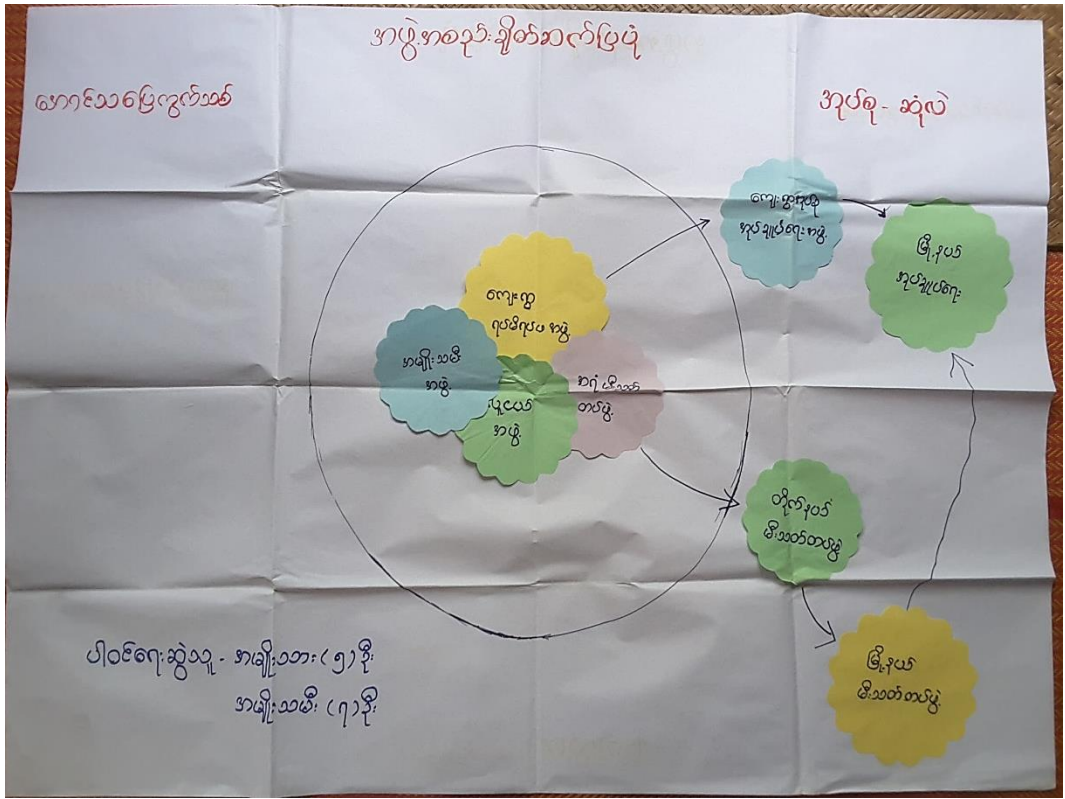 အဖွဲ့အစည်းချိတ်ဆက်ပြပုံ
အောင်သပြေကွက်သစ်
အုပ်စု - ဆုံလဲ
ကျေးရွာအုပ်စု
အုပ်ချုပ်ရေးအဖွဲ့
မြို့နယ်
အုပ်ချုပ်ရေး
ကျေးရွာ
ရပ်မိရပ်ဖ အဖွဲ့
အမျိုးသမီး
အဖွဲ့
လူငယ်
အဖွဲ့
အရံမီးသတ်
တပ်ဖွဲ့
တိုက်နယ်
မီးသတ်တပ်ဖွဲ့
မြို့နယ်
မီးသတ်တပ်ဖွဲ့
ပါဝင်ရေးဆွဲသူ - အမျိုးသား (၅) ဦး
အမျိုးသမီး (၇) ဦး